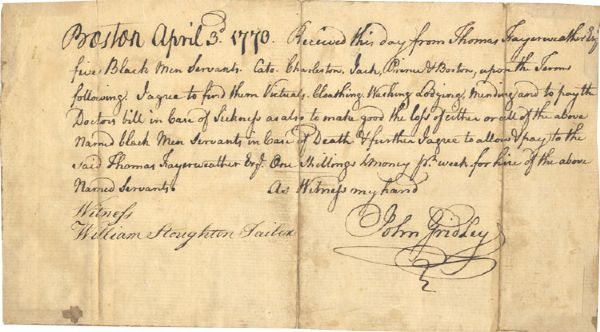 Boston April 3d. 1770. Received this day from Thomas Fayerweather Esqr
five Black Men Servants. Cato. Charleston, Jack, Prince & Boston, upon the Terms
following. I agree to find them Victuals. Cloathing. Washing Lodging, Mending and to pay the
Doctors bill in Case of Sickness as also to make good the loss of either or all of the above
Named black Men Servants in Case of Death & further I agree to allow & pay to the
said Thomas Fayerweather Esqr. One Shillings Money pr. week for hire of the above
Named Servants. As Witness my hand
Witness
William Stoughton
John Gridley